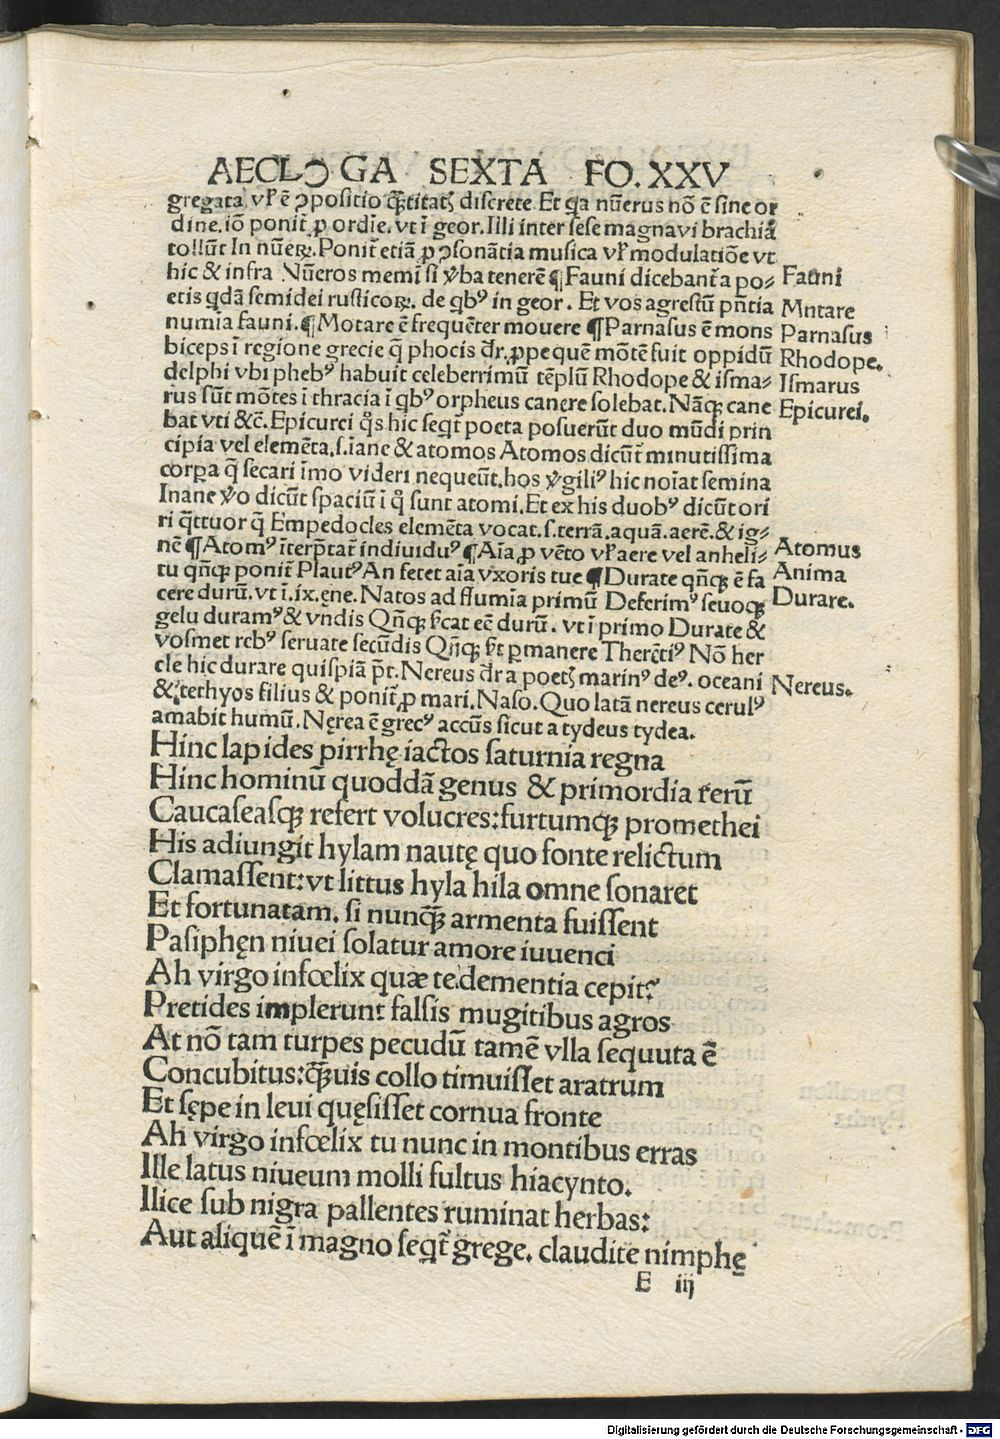 AECLOGA SEXTA FO. XXV
gregata vl̃ ē ꝯpositio q̄titatꝭ discrete Et q̇a nūerus nō ē sine or
dine. iō ponit̃ ꝓ ordīe. vt ī geor. Illi inter sese magna vi brachiā
tollūt In nūeꝝ. Ponit̃ etiā ꝓ ꝯsonātia musica vl̃ modulatiōe vt
hic & infra Nūeros memī si v̾ba tenerē ¶ Fauni dicebant̃ a po⸗
etis qdā semidei rusticoꝝ. de qbꝰ in geor. Et vos agrestū pn̄tia
numīa fauni. ¶ Motare ē frequēter mouere ¶ Parnasus ē mons
biceps ī regione grecie q̄ phocis dr̄. ꝓpe quē mōtē fuit oppidū
delphi vbi phebꝰ habuit celeberrimū tēplū Rhodope & isma⸗
rus sūt mōtes ī thracia ī qbꝰ orpheus canere solebat. Nāqꝫ cane
bat vti &c̄. Epicurei q̊s hic seqt̃ poeta posuerūt duo mūdi prin
cipia vel elemēta. s. īane & atomos Atomos dicūt minutissima
corpa q̄ secari īmo videri nequeūt. hos v̾giliꝰ hic noīat semina
Inane v̾o dicūt spaciū ī q̊ sunt atomi. Et ex his duobꝰ dicūt ori
ri q̄ttuor q̄ Empedocles elemēta vocat. s. terrā. aquā. aerē. & ig⸗
nē ¶ Atomꝰ īterp̄tat̃ indiuiduꝰ ¶ Aīa ꝓ vēto vl̃ aere vel anheli⸗
tu qn̄qꝫ ponit̃ Plautꝰ An fetet aīa vxoris tue ¶ Durate qn̄qꝫ ē fa
cere durū. vt ī. ix. ęne. Natos ad flumīa primū Deferimꝰ seuoqꝫ
gelu duramꝰ & vndis Qn̄qꝫ sīcat eē durū. vt ī primo Durate &
vosmet rebꝰ seruate secūdis Qn̄qꝫ sīt ꝑmanere Therētiꝰ Nō her
cle hic durare quispiā pt̄. Nereus dr̄ a poetꝭ marinꝰ deꝰ. oceani
& tethyos filius & ponit̃ ꝓ mari. Naso. Quo latā nereus cerulꝰ
amabit humū. Nęrea ē grecꝰ accūs sicut a tydeus tydea.
Hinc lapides pirrhę iactos saturnia regna
Hinc hominū quoddā genus & primordia rerū
Caucaseasqꝫ refert volucres: furtumqꝫ promethei
His adiungit hylam nautę quo fonte relictum
Clamassent: vt littus hyla hila omne sonaret
Et fortunatam. si nunq̄ꝫ armenta fuissent
Pasiphęn niuei solatur amore iuuenci
Ah virgo infœlix quæ te dementia cepit?
Pretides implerunt falsis mugitibus agros
At nō tam turpes pecudū tamē vlla sequuta ē
Concubitus: q̄ꝫuis collo timuisset aratrum
Et sępe in leui quęsisset cornua fronte
Ah virgo infœlix tu nunc in montibus erras
Ille latus niueum molli fultus hiacynto.
Ilice sub nigra pallentes ruminat herbas:
Aut aliquē ī magno seqt̃ grege. claudite nimphę
E iij
Fauni
Mntare
Parnasus
Rhodope.
Ismarus
Epicurei.
Atomus
Anima
Durare.
Nereus.
Digitalisierung gefördert durch die Deutsche Forschungsgemeinschaft - DFG